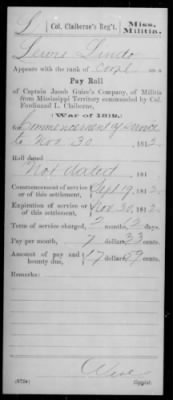 L | Col. Claiborne's Reg't. | Miss. Militia.
Lewis Lindo
Appears with the rank of Corpl on a
Pay Roll
of Captain Jacob Guice's Company, of Militia
from Mississippi Territory commanded by Col.
Ferdinand L. Claiborne,
(War of 1812,)
for Commencement of service
to Nov 30, 1812.
Roll dated
Not dated, 181
Commencement of service or of this settlement, Sept 19, 1812.
Expiration of service or of this settlement, Nov 30, 1812.
Term of service charged, 2 months, 12 days.
Pay per month, 7 dollars, 33 cents.
Amount of pay and bounty due, 17 dollars, 59 cents.
Remarks:
(672a)
Copyist.